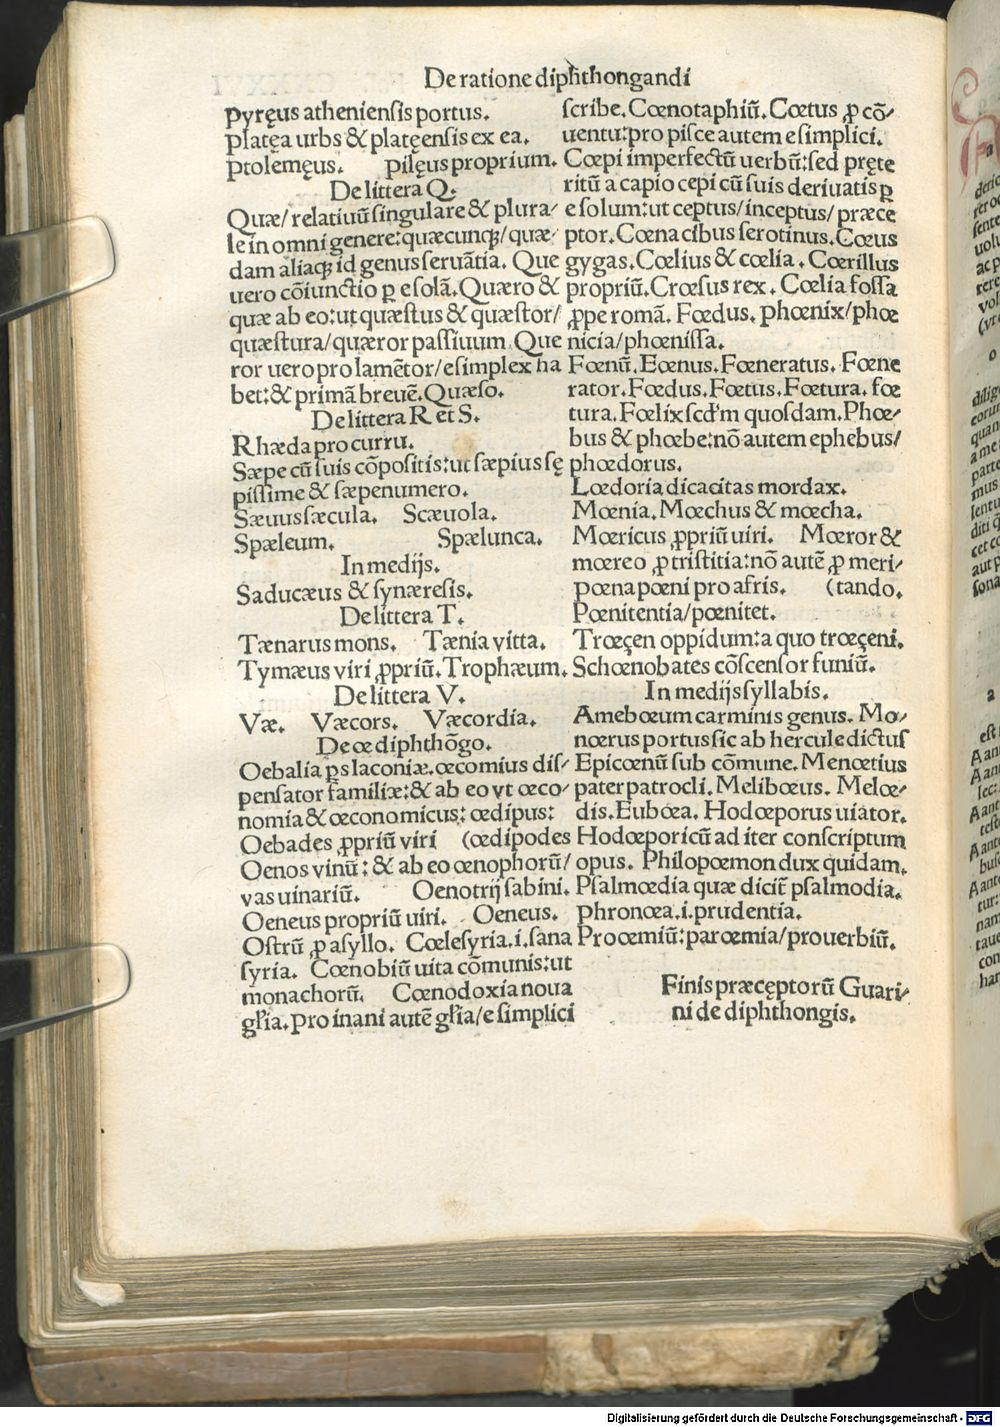 De ratione diphthongandi
Pyręus atheniensis portus.
Platęa urbs & platęensis ex ea.
Ptolemęus. Pilęus proprium.
De littera Q.
Quæ/ relatiuũ singulare & plura⸗
le in omni genere: quæcunqꝫ/ quæ⸗
dam aliaqꝫ id genus seruãtia. Que
uero cõiunctio ꝑ e solã. Quæro &
quæ ab eo: ut quæstus & quæstor/
quæstura/ quæror passiuum. Que
ror uero pro lamẽtor/ e simplex ha
bet: & primã breuẽ. Quæso.
De littera R et S.
Rhæda pro curru.
Sæpe cũ suis cõpositis: ut sæpius sę
pissime & sæpenumero.
Sæuus sæcula. Scæuola.
Spæleum. Spælunca.
In medijs.
Saducæus & synæresis.
De littera T.
Tænarus mons. Tænia vitta.
Tymæus viri ꝓpriũ. Trophæum.
De littera V.
Væ. Væcors. Væcordia.
De œ diphthõgo.
Oebalia ꝑs laconiæ. œcomius dis⸗
pensator familiæ: & ab eo vt œco⸗
nomia & œconomicus: œdipus:
Oebades ꝓpriũ viri (œdipodes
Oenos vinũ: & ab eo œnophorũ/
vas uinariũ. Oenotrij sabini.
Oeneus propriũ uiri. Oeneus.
Ostrũ ꝓ asyllo. Cœlesyria .i. sana
syria. Cœnobiũ uita cõmunis: ut
monachorũ. Cœnodoxia noua
gl̃ia. Pro inani autẽ gl̃ia/ e simplici
scribe. Cœnotaphiũ. Cœtus ꝓ cõ⸗
uentu: pro pisce autem e simplici.
Cœpi imperfectũ uerbũ: sed pręte
ritũ a capio cepi cũ suis deriuatis ꝑ
e solum: ut ceptus/ inceptus/ præce
ptor. Cœna cibus serotinus. Cœus
gygas. Cœlius & cœlia. Cœrillus
propriũ. Crœsus rex. Cœlia fossa
ꝓpe romã. Fœdus. Phœnix/ phœ
nicia/ phœnissa.
Fœnũ. Eœnus. Fœneratus. Fœne
rator. Fœdus. Fœtus. Fœtura. fœ
tura. Fœlix scd̃m quosdam. Phœ⸗
bus & phœbe: nõ autem ephebus/
phœdorus.
Lœdoria dicacitas mordax.
Mœnia. Mœchus & mœcha.
Mœricus ꝓpriũ uiri. Mœror &
mœreo ꝓ tristitia: nõ autẽ ꝓ meri⸗
pœna pœni pro afris. (tando.
Pœnitentia/ pœnitet.
Trœçen oppidum: a quo trœçeni.
Schœnobates cõscensor funiũ.
In medijs syllabis.
Amebœum carminis genus. Mo⸗
nœrus portus sic ab hercule dictus
Epicœnũ sub cõmune. Menœtius
pater patrocli. Melibœus. Melœ⸗
dis. Eubœa. Hodœporus uiator.
Hodœporicũ ad iter conscriptum
opus. Philopœmon dux quidam.
Psalmœdia quæ dicit̃ psalmodia.
Phronœa .i. prudentia.
Proœmiũ: parœmia/ prouerbiũ.
Finis præcęptorũ Guari⸗
ni de diphthongis.
Digitalisierung gefördert durch die Deutsche Forschungsgemeinschaft - DFG